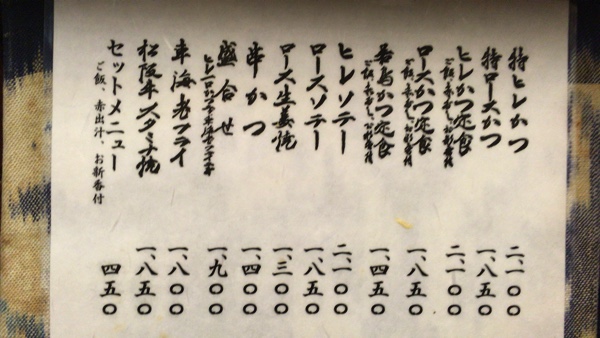 特ヒレかつ 二、一〇〇
特ロースかつ 一、八五〇
ヒレかつ定食 二、一〇〇
ご飯、赤出汁、お新香付
ロースかつ定食 一、八五〇
ご飯、赤出汁、お新香付
若鳥かつ定食 一、四五〇
ご飯、赤出汁、お新香付
ヒレソテー 二、一〇〇
ロースソテー 一、八五〇
ロース生姜焼 一、三〇〇
串かつ 一、四〇〇
盛合せ 一、九〇〇
車海老フライ 一、八〇〇
松阪牛スタミナ焼 一、八五〇
セットメニュー 四五〇
ご飯、赤出汁、お新香付